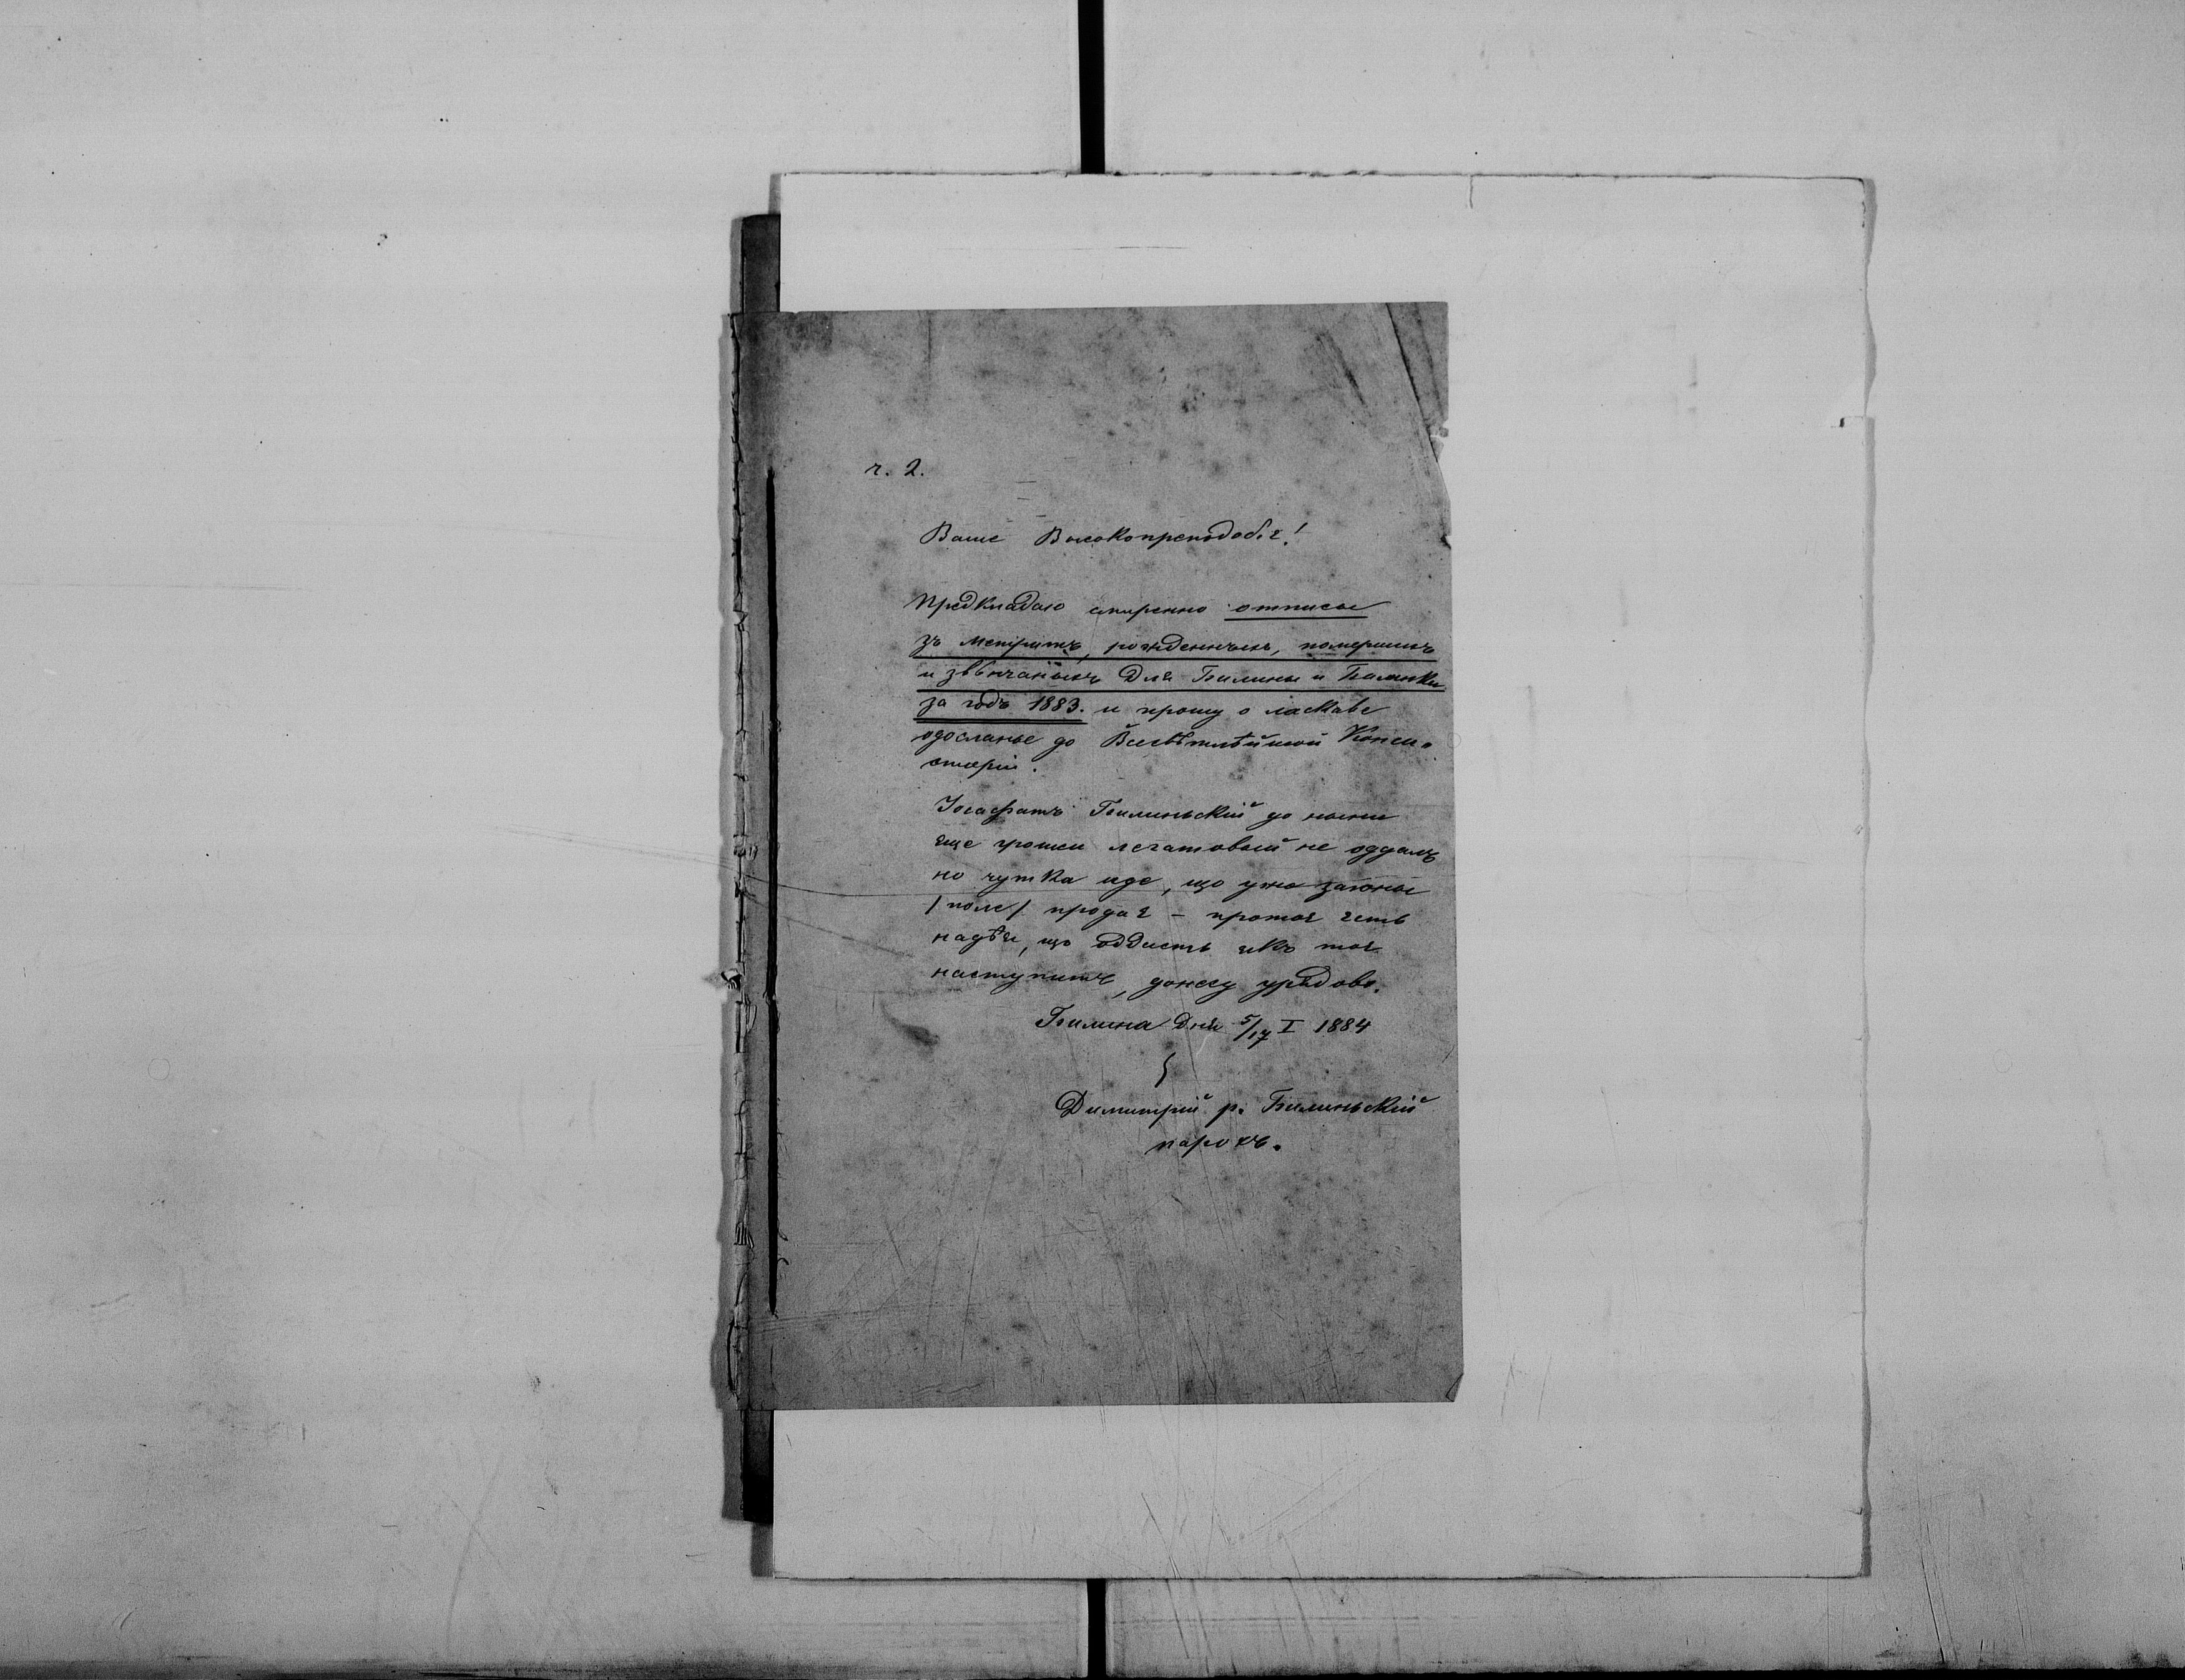 ч. 2.
Ваше Высокопреподобіє!
Предкладаю смиренно отписы
зъ метрикъ, рожденныхъ, помершихъ
и звѣнчаныхъ для Билины и Билинки
за годъ 1883. и прошу о ласкаве
одосланье до Всесвѣтлѣйшой Конси-
сторіи.
Іосафатъ Билиньскій до ныни
еще грошей легатовый не оддалъ
но чутка иде, що уже загоны
/поле/ продає – протоє єсть
надѣя, що оддасть якъ тоє
наступитъ, донесу урядово.
Билина дня 5/17 I 1884
Димитрій р. Билиньскій
парохъ.